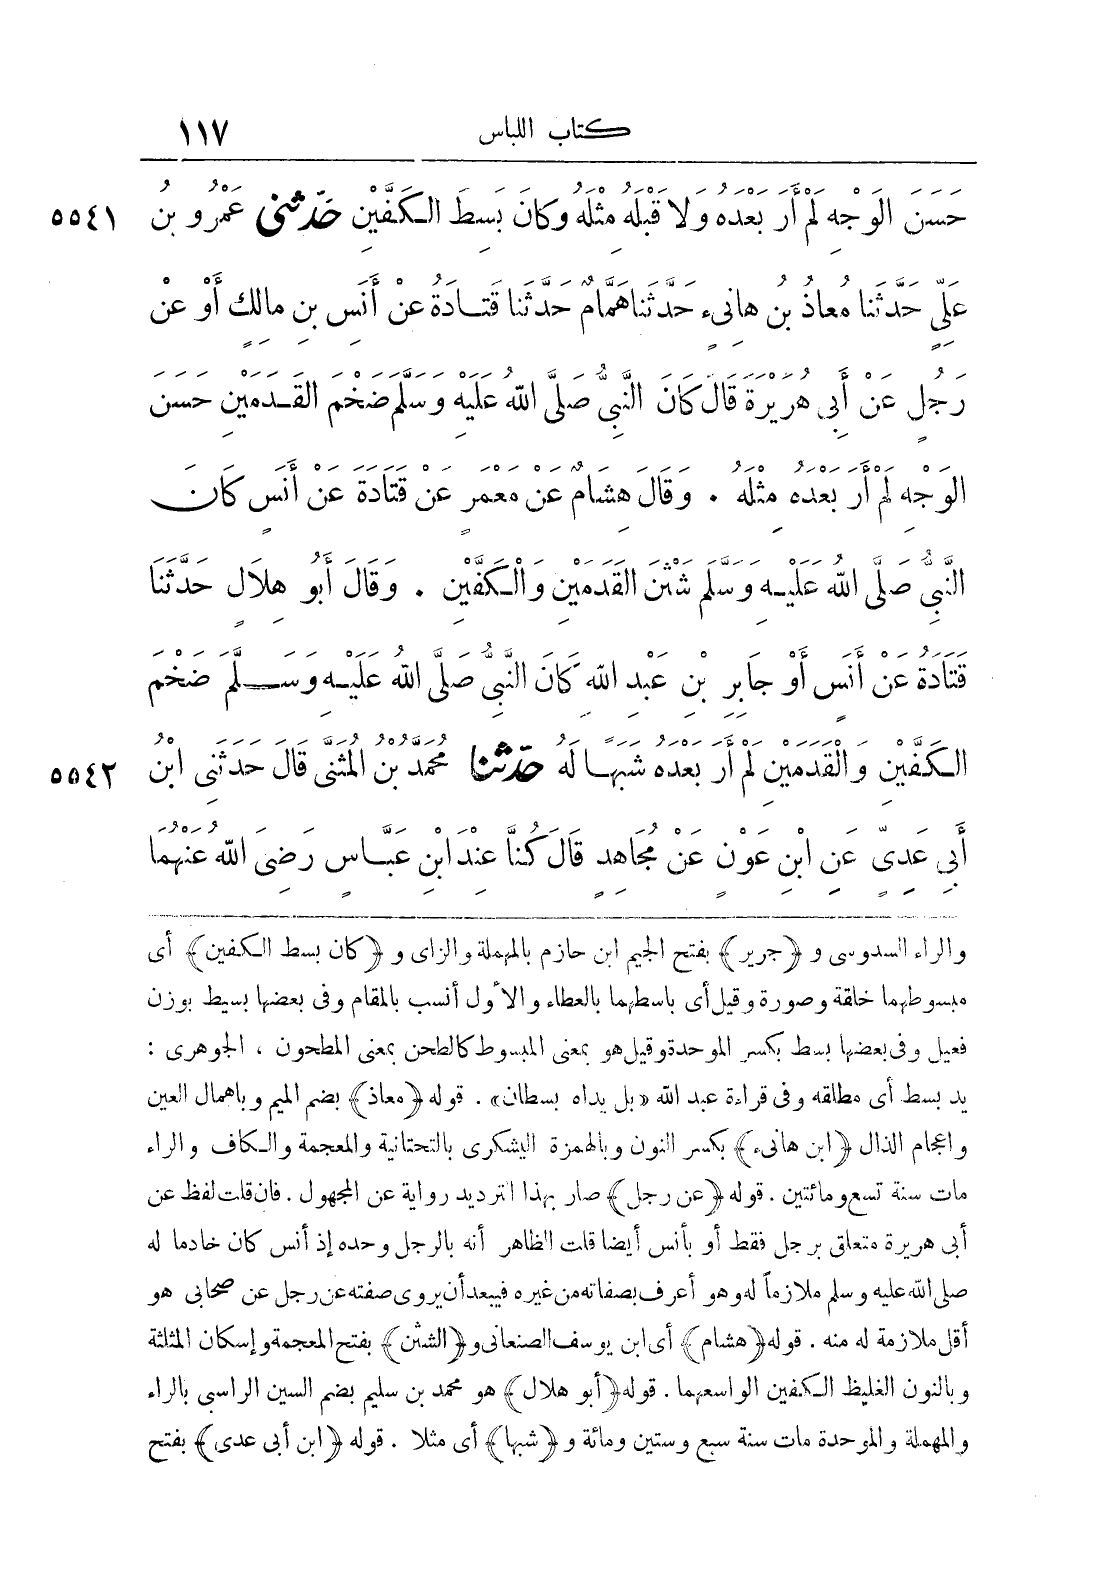 كتاب اللباس ١١٧
حَسَنَ الوَجْهِ لَمْ أَرَ بَعْدَهُ وَلا قَبْلَهُ مِثْلَهُ وَكَانَ بَسِطَ الكَفَّيْنِ حَدّثني عَمْرُو بنُ ٥٥٤١
عَلِيٍّ حَدَّثَنا مُعاذُ بنُ هانِىءٍ حَدَّثَنا هَمَّامٌ حَدَّثَنا قَتادَةُ عنْ أَنَسِ بنِ مالِكٍ أَوْ عنْ
رَجُلٍ عَنْ أَبِي هُرَيْرَةَ قَالَ كَانَ النَّبِيُّ صَلَّى اللهُ عَلَيْهِ وَسَلَّمَ ضَخْمَ القَدَمَيْنِ حَسَنَ
الوَجْهِ لَمْ أَرَ بَعْدَهُ مِثْلَهُ . وَقَالَ هِشَامٌ عَنْ مَعْمَرٍ عَنْ قَتَادَةَ عَنْ أَنَسٍ كَانَ
النَّبِيُّ صَلَّى اللهُ عَلَيْهِ وَسَلَّمَ شَثْنَ القَدَمَيْنِ وَالْكَفَّيْنِ . وَقَالَ أَبُو هِلَالٍ حَدَّثَنَا
قَتَادَةُ عَنْ أَنَسٍ أَوْ جَابِرِ بْنِ عَبْدِ اللهِ كَانَ النَّبِيُّ صَلَّى اللهُ عَلَيْهِ وَسَلَّمَ ضَخْمَ
الكَفَّيْنِ وَالْقَدَمَيْنِ لَمْ أَرَ بَعْدَهُ شَبَهًا لَهُ حَدّثنا مُحَمَّدُ بنُ المُثَنَّى قَالَ حَدَثَنِى ابْنُ ٥٥٤٢
أَبِى عَدِىٍّ عَنِ ابْنِ عَوْنٍ عَنْ مُجَاهِدٍ قَالَ كُنَّا عِنْدَ ابْنِ عَبَّاسٍ رَضِىَ اللهُ عَنْهُمَا
والراء السدوسى و ﴿جرير﴾ بفتح الجيم ابن حازم بالمهملة والزاى و ﴿كان بسط الكفين﴾ أى
مبسوطهما خلقة وصورة وقيل أى باسطهما بالعطاء والأول أنسب بالمقام وفى بعضها بسيط بوزن
فعيل وفى بعضها بسط بكسر الموحدة وقيل هو بمعنى المبسوط كالطحن بمعنى المطحون ، الجوهرى :
يد بسط أى مطلقه وفى قراءة عبد الله «بل يداه بسطان» . قوله ﴿معاذ﴾ بضم الميم وباهمال العين
واعجام الذال ﴿ابن هانىء﴾ بكسر النون وبالهمزة اليشكرى بالتحتانية والمعجمة والكاف والراء
مات سنة تسع ومائتين . قوله ﴿عن رجل﴾ صار بهذا الترديد رواية عن المجهول . فان قلت لفظ عن
أبى هريرة متعلق برجل فقط أو بأنس أيضا قلت الظاهر أنه بالرجل وحده إذ أنس كان خادما له
صلى الله عليه وسلم ملازماً له وهو أعرف بصفاته من غيره فيبعد أن يروى صفته عن رجل عن صحابى هو
أقل ملازمة له منه . قوله ﴿هشام﴾ أى ابن يوسف الصنعانى و ﴿الشثن﴾ بفتح المعجمة وإسكان المثلثة
وبالنون الغليظ الكفين الواسعهما . قوله ﴿أبو هلال﴾ هو محمد بن سليم بضم السين الراسبى بالراء
والمهملة والموحدة مات سنة سبع وستين ومائة و ﴿شبها﴾ أى مثلا . قوله ﴿ابن أبى عدى﴾ بفتح